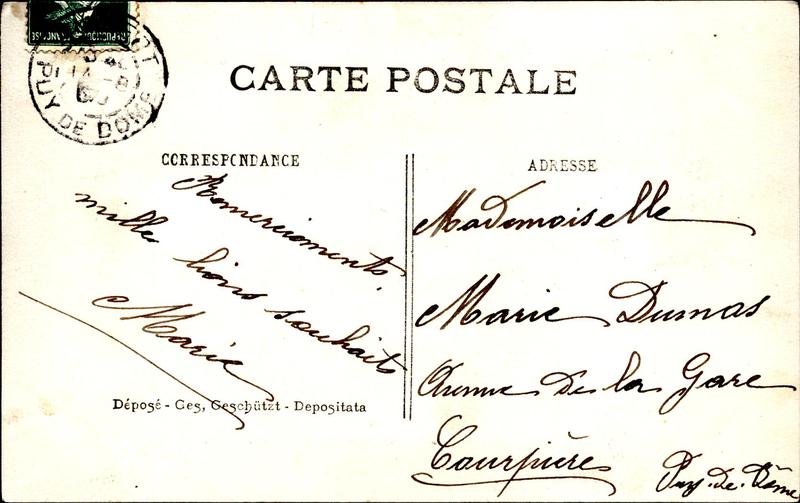 REPUBLIQUE FRANÇAISE
PUY DE DOME
CARTE POSTALE
CORRESPONDANCE
Remerciements,
mille bons souhaits
Marie
Déposé - Ges, Geschützt - Depositata
ADRESSE
Mademoiselle
Marie Dumas
Avenue De la Gare
Courpière
Puy-De-Dôme